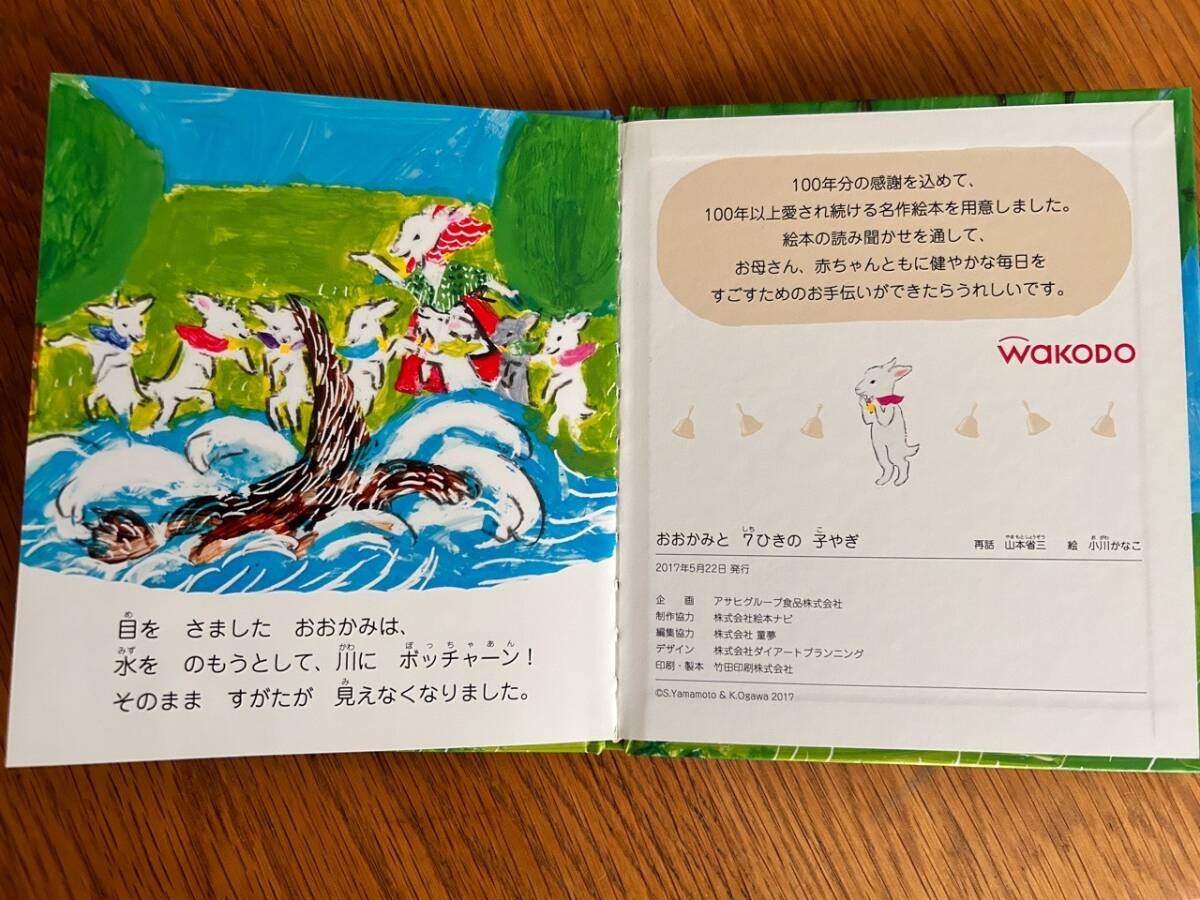 目を さました おおかみは、
水を のもうとして、川に ボッチャーン!
そのまま すがたが 見えなくなりました。
100年分の感謝を込めて、
100年以上愛され続ける名作絵本を用意しました。
絵本の読み聞かせを通して、
お母さん、赤ちゃんともに健やかな毎日を
すごすためのお手伝いができたらうれしいです。
WAKODO
おおかみと 7ひきの 子やぎ 再話 山本省三 絵 小川かなこ
2017年5月22日 発行
企 画 アサヒグループ食品株式会社
制作協力 株式会社絵本ナビ
編集協力 株式会社 童夢
デザイン 株式会社ダイアートプランニング
印刷・製本 竹田印刷株式会社
©S.Yamamoto & K.Ogawa 2017